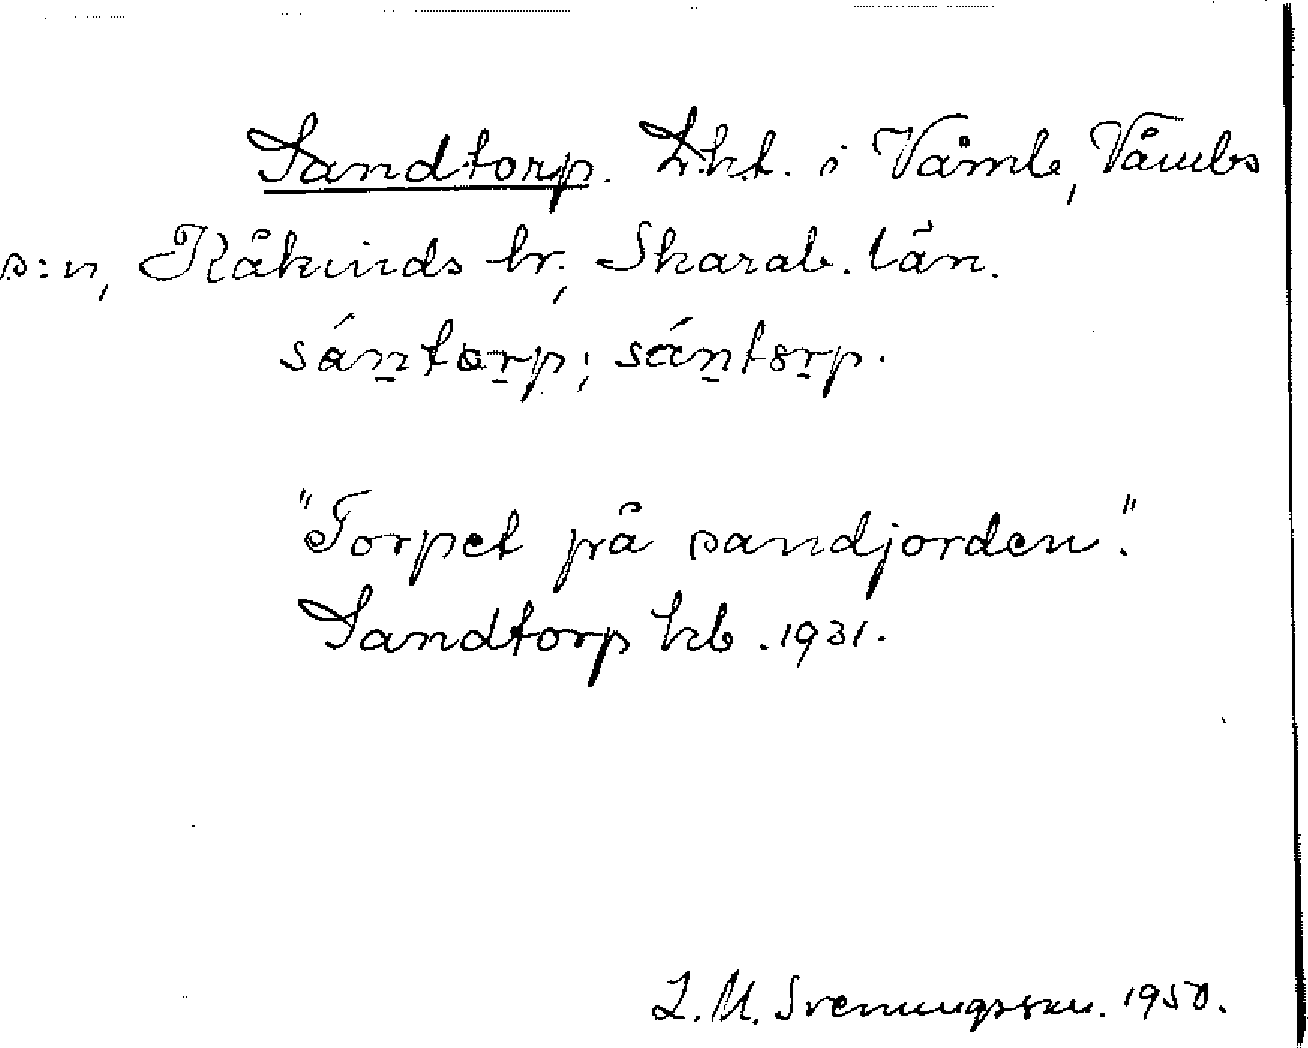 Sandtorp. Lht. i Våmb, Våmbs
s:n, Kåkinds hr; Skarab. län.
sántorp; sántorp.
"Torpet på sandjorden".
Sandtorp kb. 1931.
L. M. Svenungsson. 1950.